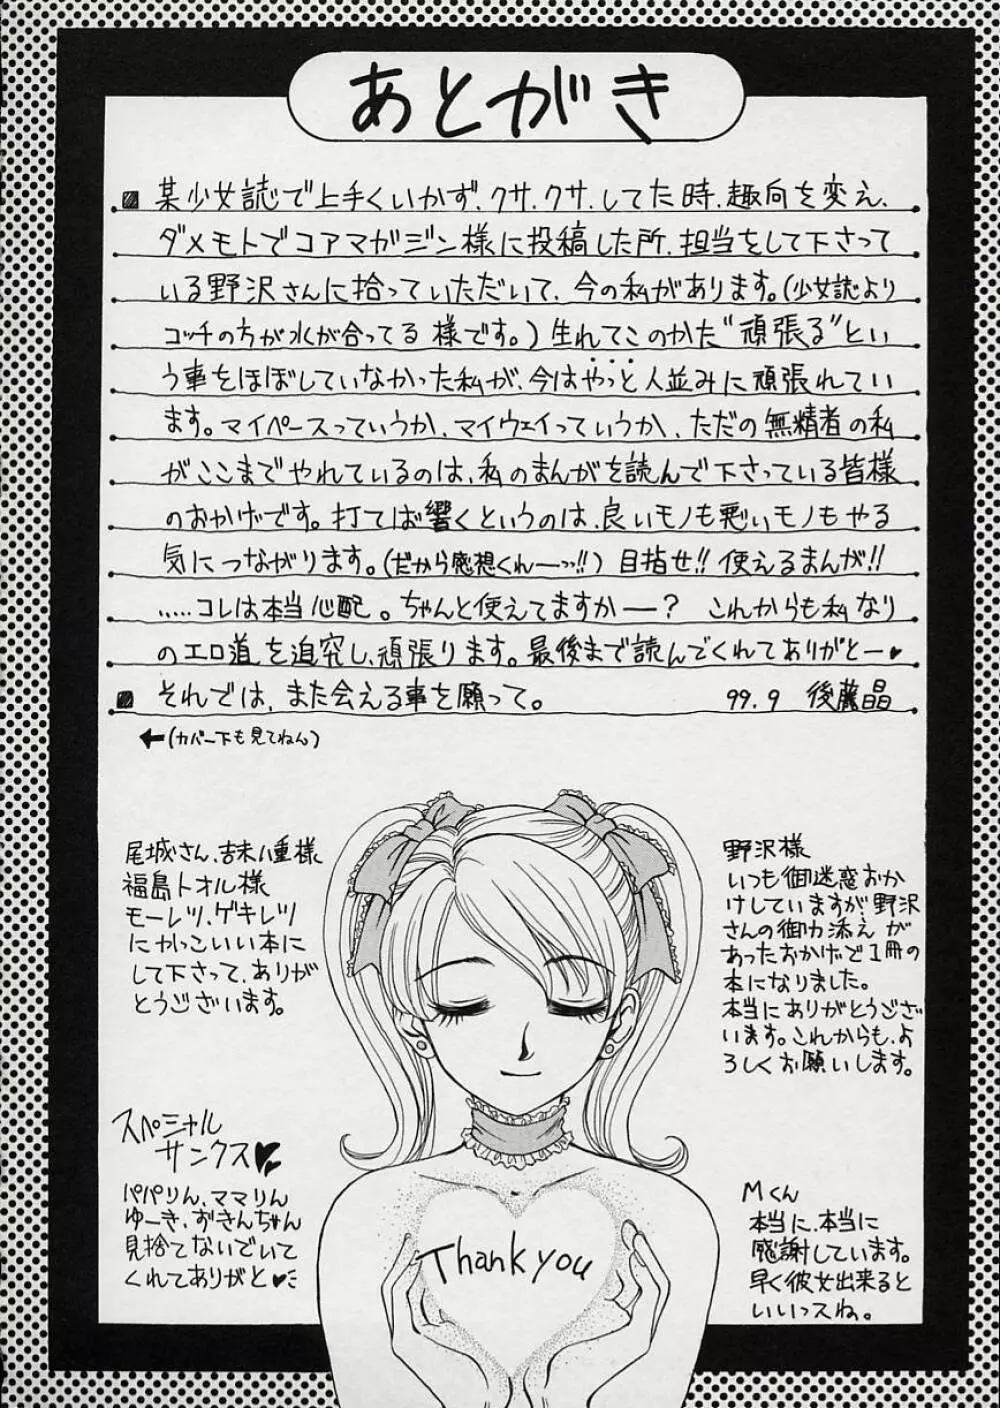 あとがき
某少女誌で上手くいかず、クサ、クサ、してた時、趣向を変え、
ダメモトでコアマガジン様に投稿した所、担当をして下さって
いる野沢さんに拾っていただいて、今の私があります。(少女誌より
コッチの方が水が合ってる様です。)生れてこのかた“頑張る”とい
う事をほぼしていなかった私が、今はやっと人並みに頑張れてい
ます。マイペースっていうか、マイウェイっていうか、ただの無精者の私
がここまでやれているのは、私のまんがを読んで下さっている皆様
のおかげです。打てば響くというのは、良いモノも悪いモノもやる
気につながります。(だから感想くれーっ!!)目指せ!!使えるまんが!!
.....コレは本当心配。ちゃんと使えてますかー?これからも私なり
のエロ道を追究し、頑張ります。最後まで読んでくれてありがとー♥
それでは、また会える事を願って。 99.9 後藤晶
←(カバー下も見てねん)
尾城さん、吉未八重様
福島トオル様
モーレツ、ゲキレツ
にかっこいい本に
して下さって、ありが
とうございます。
野沢様
いつも御迷惑おか
けしていますが、野沢
さんの御力添えが
あったおかげで1冊の
本になりました。
本当にありがとうござい
います。これからも、よ
ろしくお願いします。
スペシャル
サンクス♥
パパりん、ママりん
ゆーき、おきんちゃん
見捨てないでいて
くれてありがと♥
Mくん
本当に、本当に
感謝しています。
早く彼女出来ると
いいっスね。
Thank you